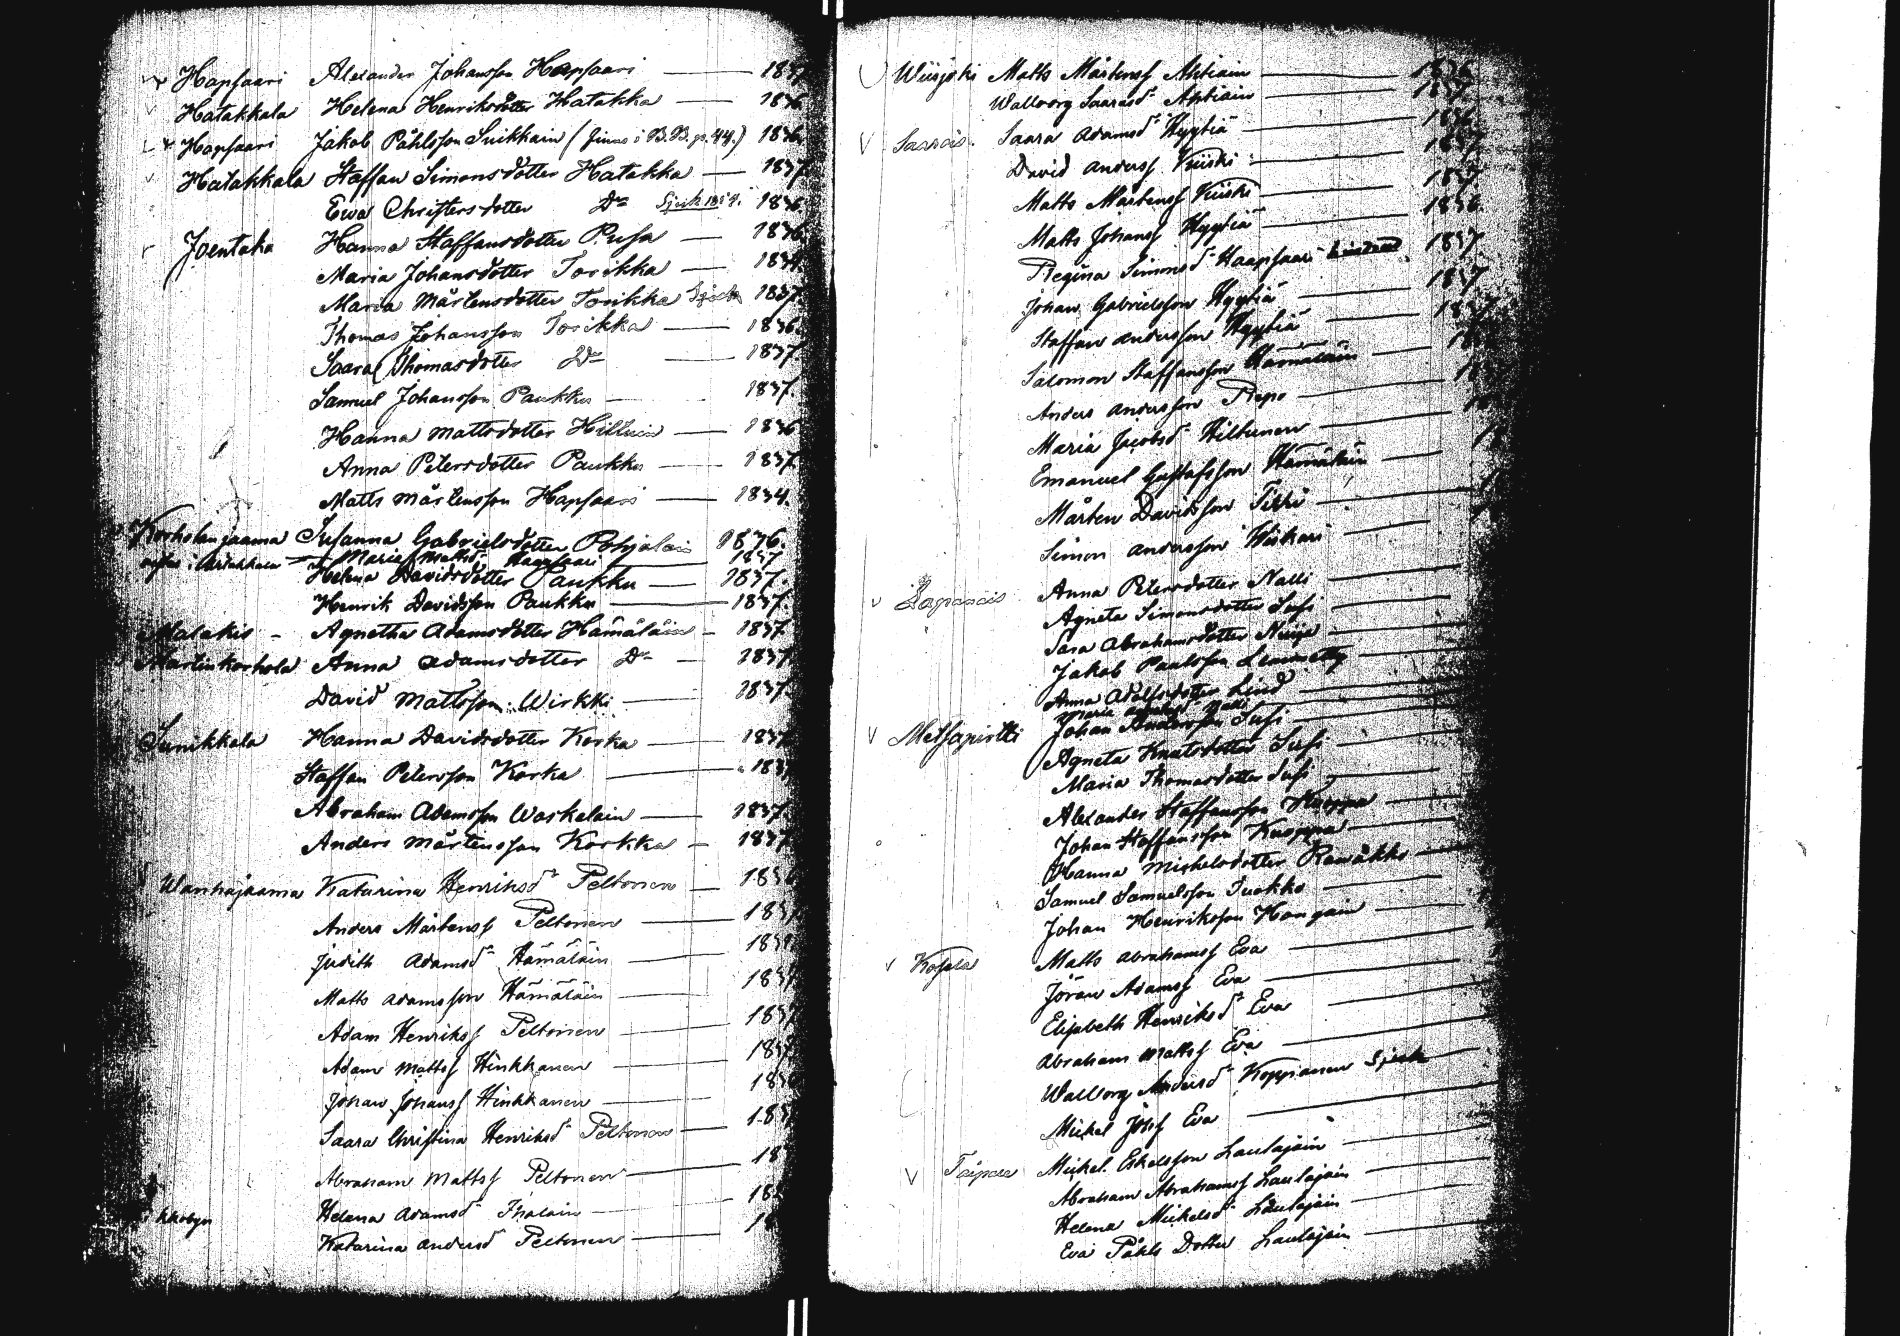 Hapsaari Alexander Johansson Hapsaari 1837
Hatakkala Helena Henriksdotter Hatakka 1836
Hapsaari Jakob Påhlsson Suikkain (finns i B.B. p. 44.) 1836
Hatakkala Staffan Simonsdotter Hatakka 1837
Ewa Christersdotter Do Sjuk 1836.
Joentaka Hanna Staffansdotter Pusa 1836
Maria Johansdotter Torikka 1834.
Maria Mårtensdotter Torikka Sjuk 1837.
Thomas Johansson Torikka 1836.
Saara Thomasdotter Do 1837.
Samuel Johansson Paukku 1837.
Hanna Mattsdotter Hiltuin 1836
Anna Petersdotter Paukku 1837.
Matts Mårtensson Hapsaari 1834.
Korholanjaama Susanna Gabrielsdotter Pohjalain 1836.
Maria Mattsdr Haapsaari 1837
Helena Davidsdotter Paukku 1837.
Henrik Davidsson Paukku 1837.
Malakis - Agnetha Adamsdotter Hämäläin 1837
Martinkorhola Anna Adamsdotter Do 1837
David Mattsson Wirkki 1837.
Sunikkala Hanna Davidsdotter Korka 1837
Staffan Petersson Korka 1837
Abraham Adamsson Waskelain 1837.
Anders Mårtensson Korkka 1837
Wanhajaama Katarina Henriksdr Peltonen 1836
Anders Mårtenss Peltonen 1837
Judith Adamsdr Hämäläin 1837
Matts Adamsson Hämäläin 1837
Adam Henrikss Peltonen 1837
Adam Mattss Hinkkanen 1837
Johan Johanss Hinkkanen 1836
Saara Christina Henriksdr Peltonen 1837
Abraham Mattss Peltonen 18
Helena Adamsdr Ihalain 18
Katarina Andersd Peltonen 18
Wiisjoki Matts Mårtenss Ahtiain 1836
Wallborg Saarasdr Ahtiain 1837
Saarois. Saara Adamsdr Hyytiä 1836
David Anderss Kiiski 1837
Matts Mårtenss Kiiski 1837
Matts Johanss Hyytiä 1836.
Regina Simonsdr Haapsaari 1837
Johan Gabrielsson Hyytiä 1837
Staffan Andersson Hyytiä 1837
Salomon Staffansson Hämäläin 18
Anders Andersson Repo 18
Maria Jacobsdr Hiltunen 18
Emanuel Gustafsson Hämäläin 18
Mårten Davidsson Tikki
Simon Andersson Wiskari
Lapanais Anna Petersdotter Nalli
Agneta Simonsdotter Susi
Sara Abrahamsdotter Niija
Jakob Paulsson Lemmetty
Anna Adolfsdotter Lind
Metsäpirtti Johan Andersson Susi
Agneta Knutsdotter Susi
Maria Thomasdotter Susi
Alexander Staffansson Kuoppa
Johan Staffansson Kuoppa
Hanna Michelsdotter Rawäkko
Samuel Samuelsson Tuokko
Johan Henriksson Hongain
Kosela Matts Abrahamss Eva
Jöran Adamss Eva
Elisabeth Henriksdr Eva
Abraham Mattss Eva
Wallborg Andersdr Koppianen Sjuk
Mickel Joss Eva
Taipare Mickel Eskelsson Laulajain
Abraham Abrahamss Laulajain
Helena Mickelsdr Laulajain
Eva Påhls Dotter Laulajain